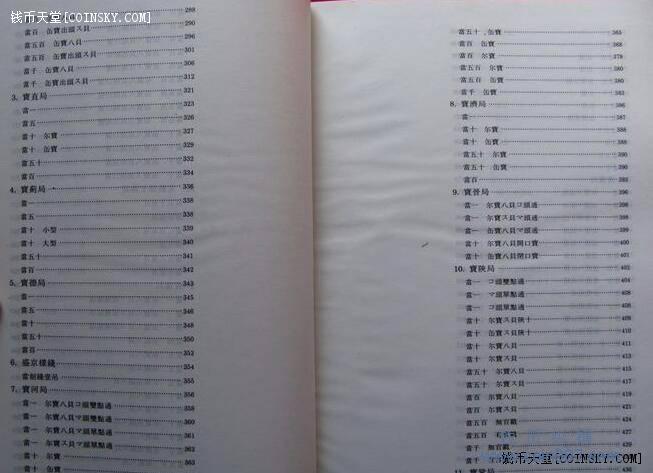 钱币天堂[COINSKY.COM]
288
當百 缶寶出頭ス貝 290
當五百 缶寶八貝 296
當五百 缶寶出頭ス貝 297
當千 缶寶八貝 306
當千 缶寶出頭ス貝 312
3. 寶直局 321
當一 321
當五 326
當十 尔寶 327
當十 缶寶 329
當五十 332
當百 334
4. 寶薊局 336
當一 338
當五
當十 小型 339
當十 大型 340
當五十 341
當百 342
5. 寶德局 343
當一 345
當五 346
當十 348
當五十
當百 352
6. 盛京樣錢 354
當制錢壹吊 355
7. 寶河局 356
當一 尔寶八貝コ頭雙點通 358
當一 尔寶八貝マ頭雙點通 360
當一 尔寶八貝マ頭單點通 362
當一 尔寶ス貝マ頭單點通 362
當十 尔寶 363
當十 缶寶 363
當五十 缶寶 365
當百 缶寶 368
當百 尔寶 379
當五百 缶寶 380
當千 缶寶 383
8. 寶濟局 386
當一 387
當十 尔寶 388
當十 缶寶 388
當五十 尔寶 390
當五十 缶寶
當百
9. 寶晉局 396
當一 尔寶八貝コ頭通 398
當一 尔寶ス貝マ頭通 399
當一 缶寶八貝マ頭通 399
當十 尔寶八貝開口寶 400
當十 缶寶八貝閉口寶 401
10. 寶陝局 402
當一 コ頭雙點通 404
當一 マ頭單點通 408
當一 マ頭單點通 408
當十 尔寶ス貝陝十 409
當十 缶寶ス貝陝十 410
當十 尔寶八貝 411
當十 尔寶ス貝 413
當五十 尔寶八貝
當五十 尔寶ス貝 417
當百 尔寶八貝 421
當百 尔寶ス貝 429
當五百 無百戳 424
當五百
當千 430
钱币天堂[COINSKY.COM]